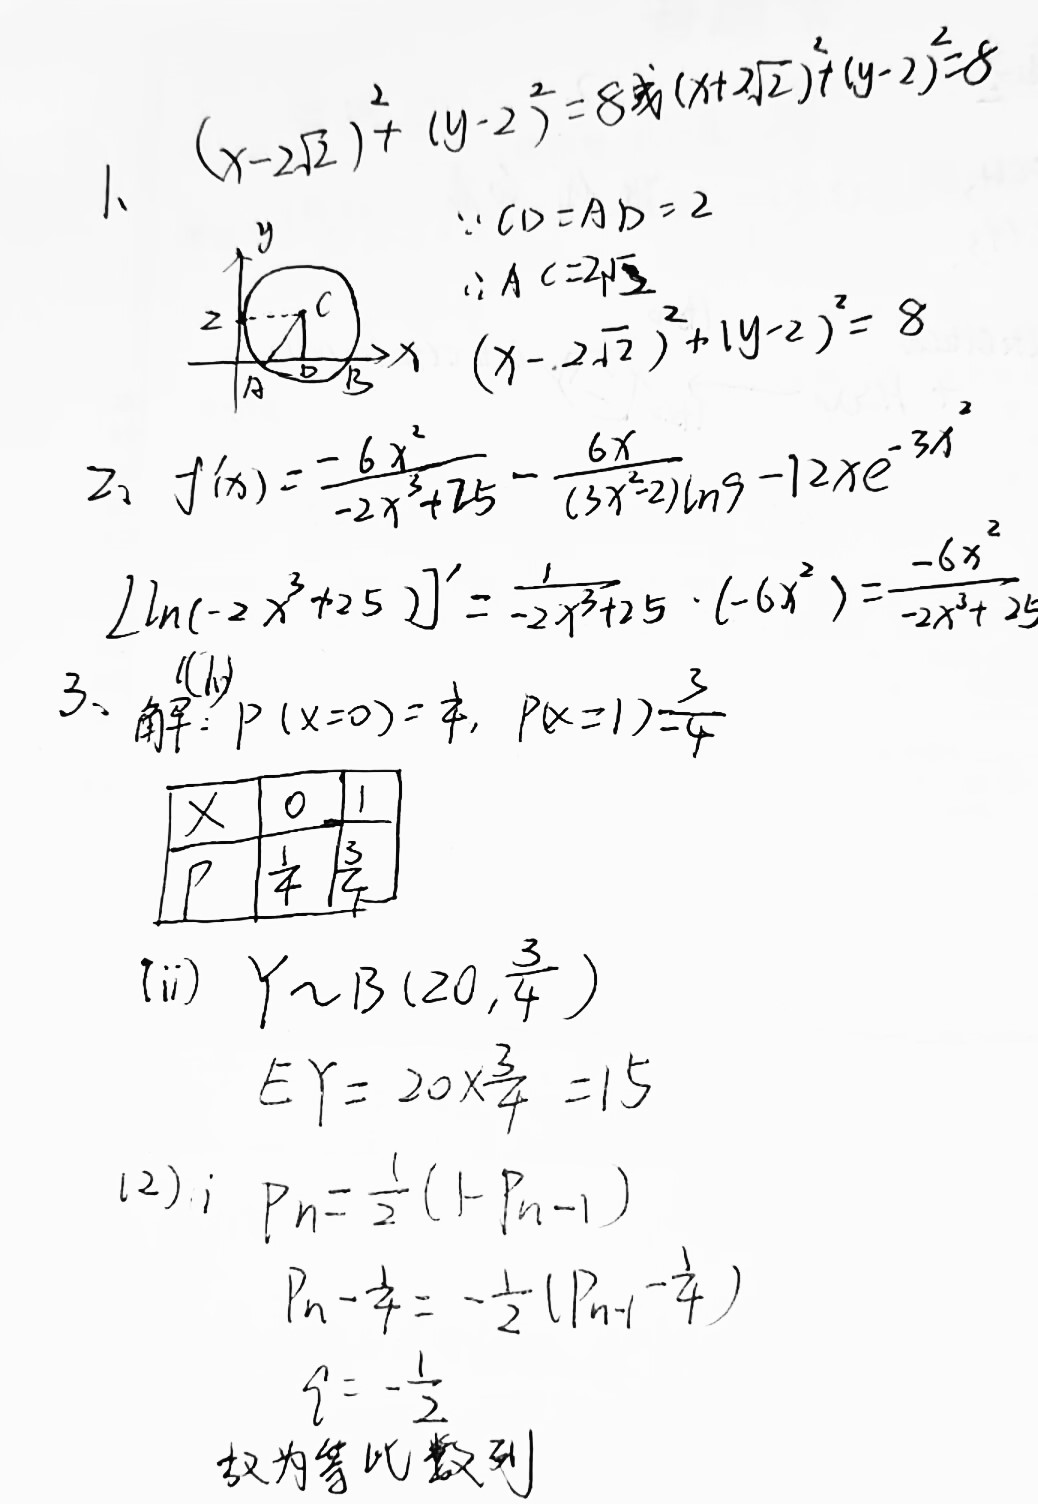 (x-2√2)²+(y-2)²=8或(x+2√2)²+(y-2)²=8
1、
∵CD=AD=2
y
∴AC=2√2
2 C
(x-2√2)²+(y-2)²=8
A D B x
2、f'(x)=\frac{-6x²}{-2x³+25}-\frac{6x}{(3x²-2)ln9}-12xe^{-3x²}
[ln(-2x³+25)]'=\frac{1}{-2x³+25}·(-6x²)=\frac{-6x²}{-2x³+25}
3、解: P(X=0)=\frac{1}{4}, P(X=1)=\frac{3}{4}
X 0 1
P \frac{1}{4} \frac{3}{4}
(ii) Y~B(20,\frac{3}{4})
EY=20×\frac{3}{4}=15
(2)i Pn=\frac{1}{2}(1-P_{n-1})
Pn-\frac{1}{4}=-\frac{1}{2}(P_{n-1}-\frac{1}{4})
q=-\frac{1}{2}
故为等比数列